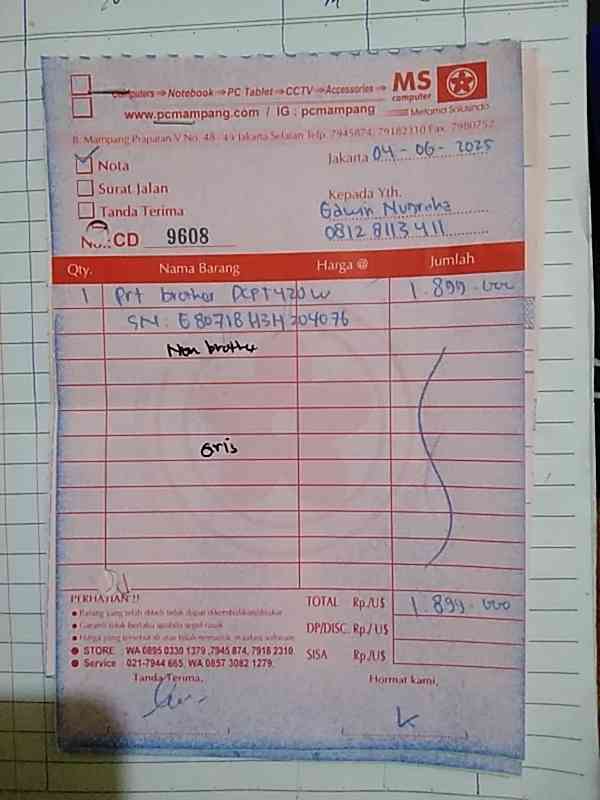 Computers ⇒ Notebook ⇒ PC Tablet ⇒ CCTV ⇒ Accessories ⇒ MS computer
www.pcmampang.com / IG : pcmampang
Metama Solusindo
Jl. Mampang Prapatan V No. 48 - 49 Jakarta Selatan Telp. 7945874, 79182310 Fax. 7980752
Nota
Jakarta 04 - 06 - 2025
Surat Jalan
Kepada Yth.
Tanda Terima
Gawin Nugraha
08128113411
No.: CD 9608
Qty. Nama Barang Harga @ Jumlah
1 Prt brother DCPT420W 1.899.000
SN: E80718H3H204076
Non brother
Gris
PERHATIAN !!
TOTAL Rp./U$ 1.899.000
• Barang yang telah dibeli tidak dapat dikembalikan/ditukar
• Garansi tidak berlaku apabila segel rusak
DP/DISC. Rp./U$
• Harga yang tersebut di atas tidak termasuk instalasi software
• STORE : WA 0895 0330 1379 ,7945 874, 7918 2310
SISA Rp./U$
• Service : 021-7944 665, WA 0857 3082 1279.
Tanda Terima, Hormat kami,